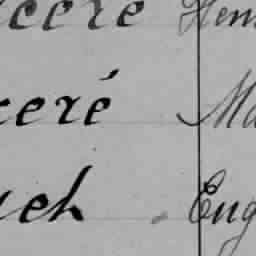 ceré Hen
ceré Ma
ch Eug